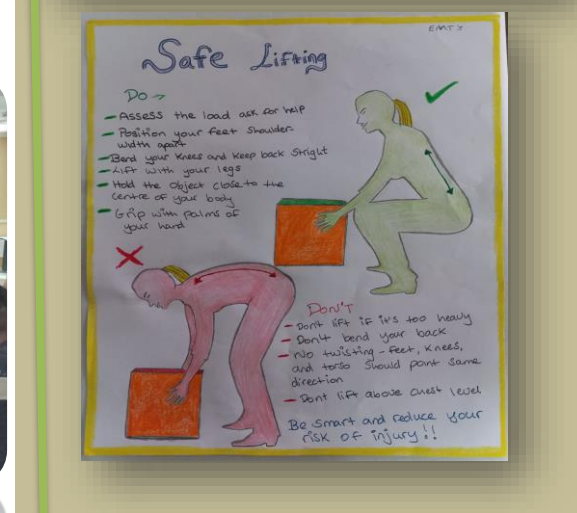 EMTY
Safe Lifting
Do →
- Assess the load ask for help
- Position your feet shoulder
width apart
- Bend your knees and keep back stright
- Lift with your legs
- Hold the object close to the
centre of your body
- Grip with palms of
your hand
DON'T
- Don't lift if it's too heavy
- Don't bend your back
- No twisting - feet, knees,
and torso should point same
direction
- Dont lift above chest level
Be smart and reduce your
risk of injury!!